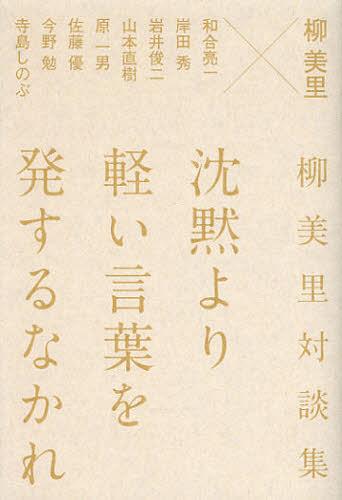 柳美里
×
和合亮一
岸田 秀
岩井俊二
山本直樹
原 一男
佐藤 優
今野 勉
寺島しのぶ
柳美里対談集
沈黙より
軽い言葉を
発するなかれ